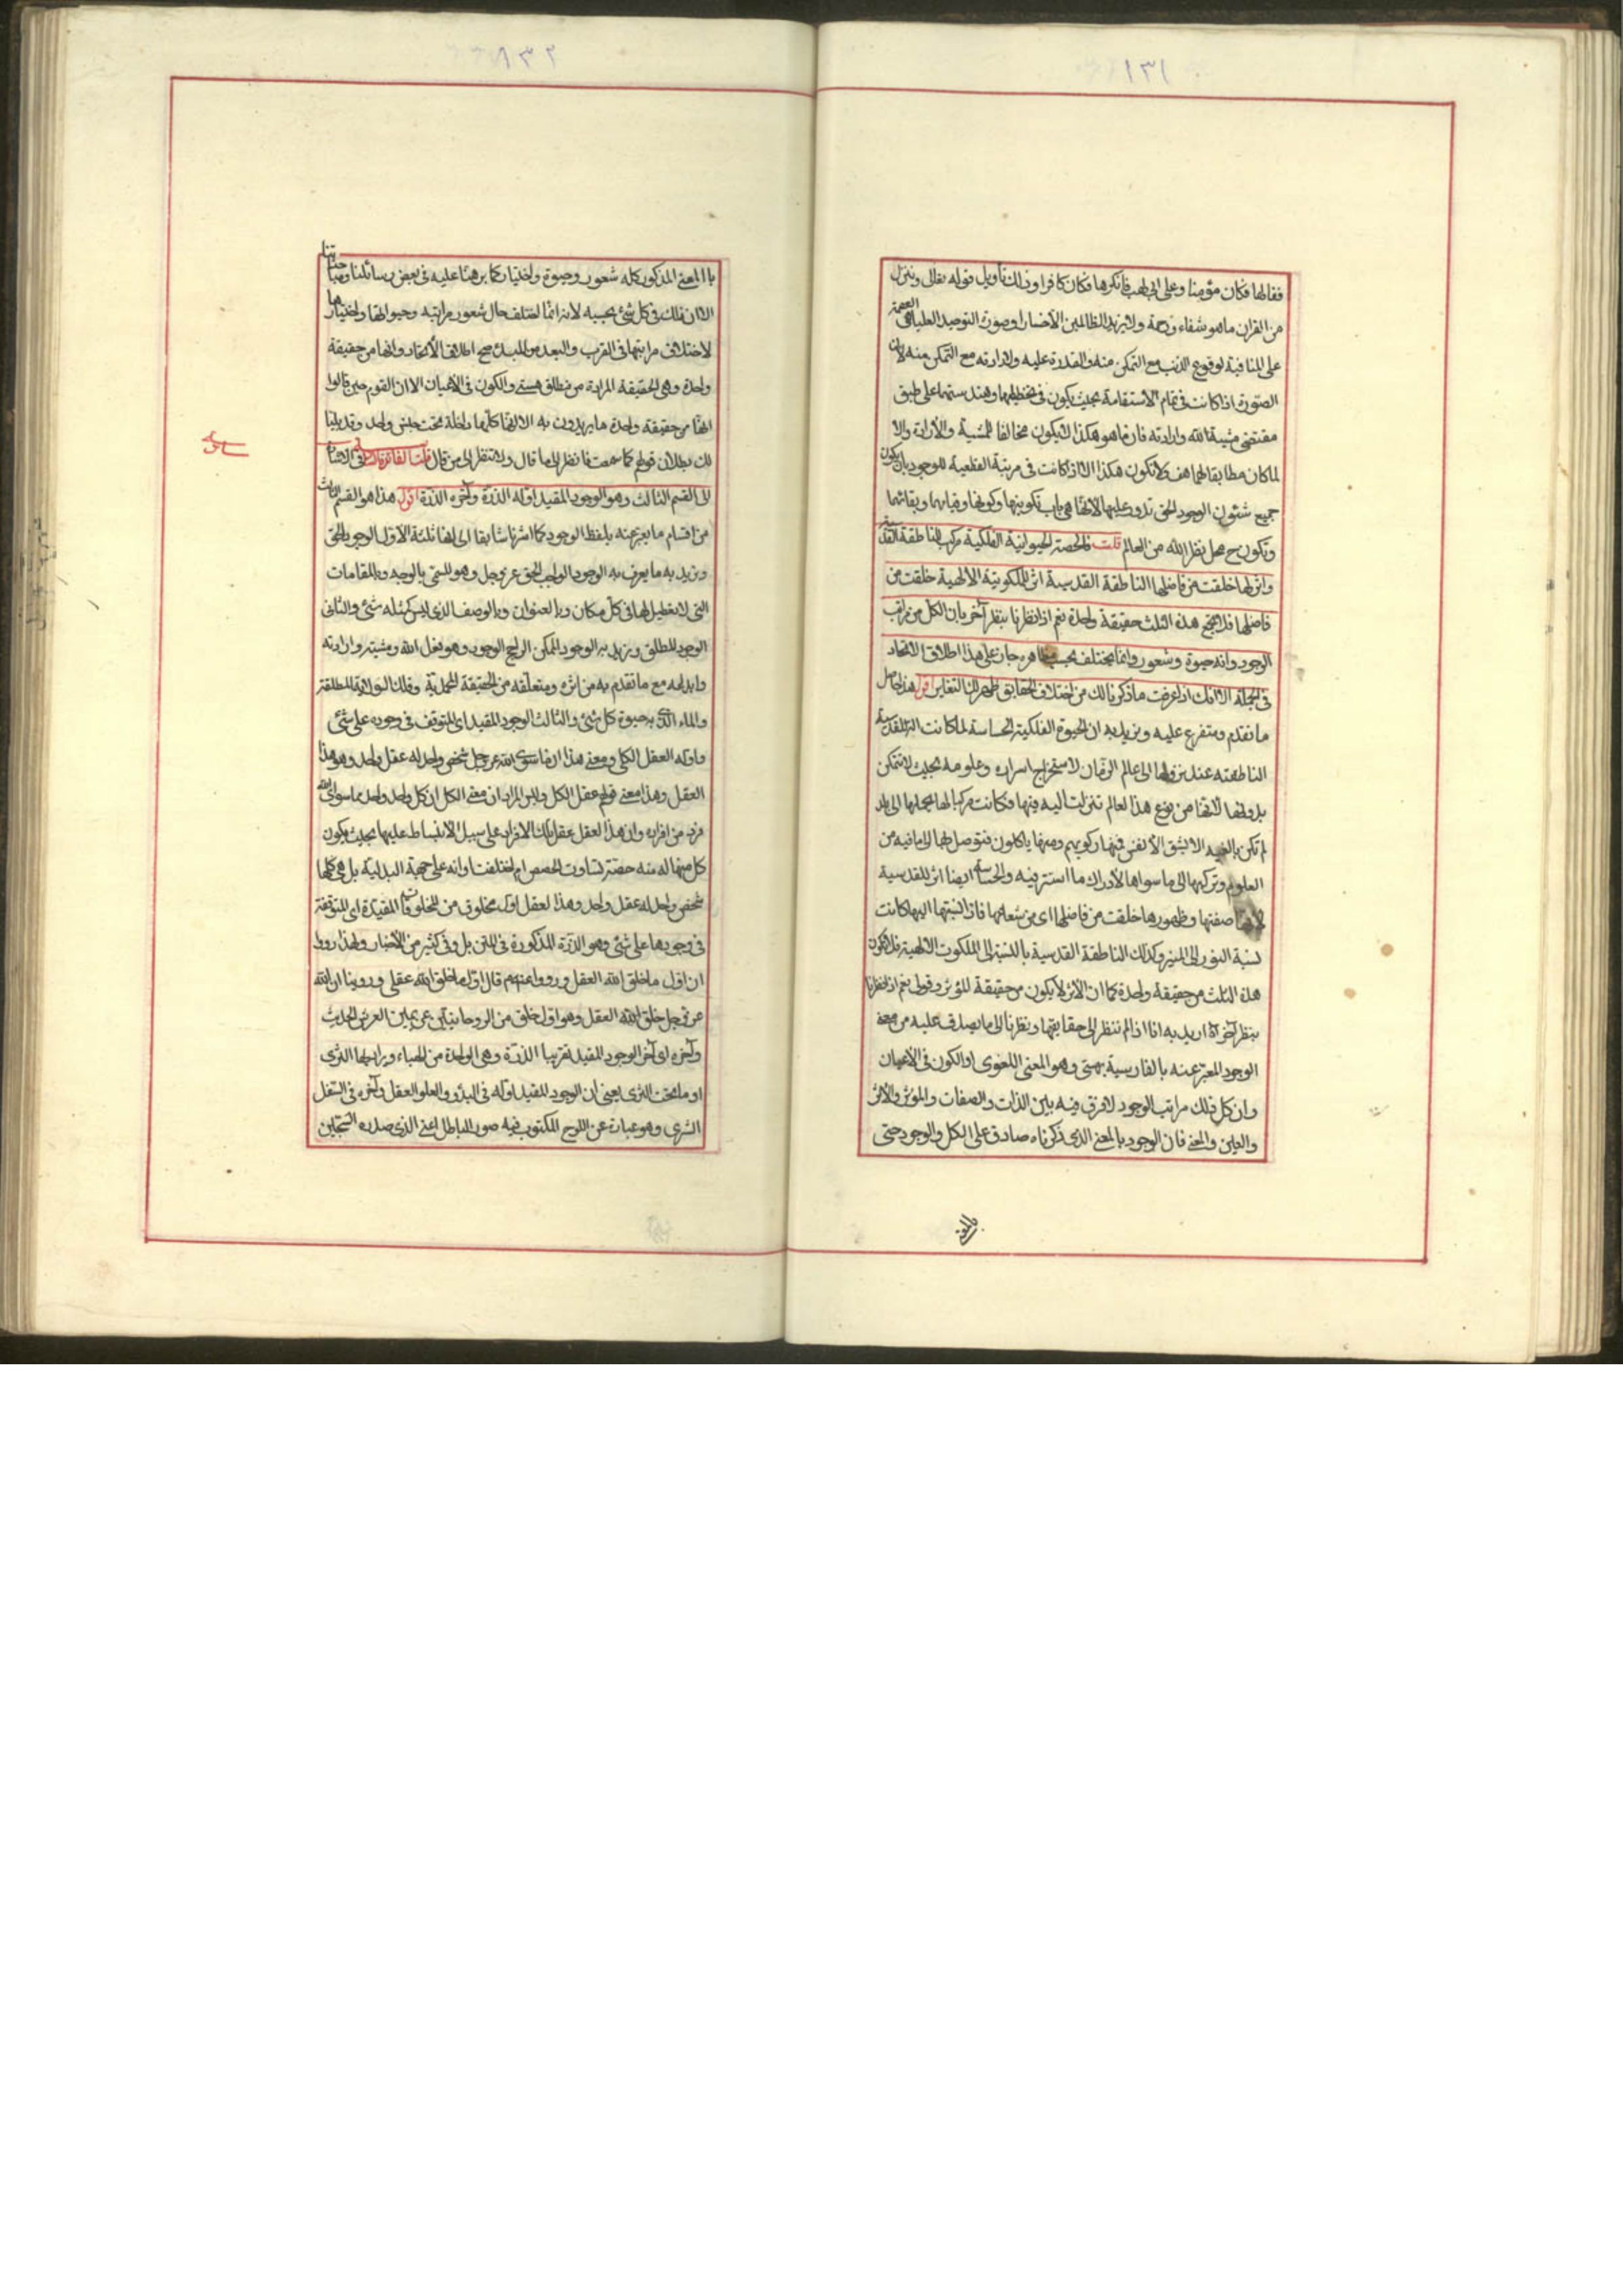 ١٣١
فقالها فكان مؤمنا وعلى ابى لهب فانكرها فكان كافرا وذلك تأويل قوله تعالى وننزل
من القران ما هو شفاء ورحمة ولا يزيد الظالمين الا خسارا وصورة التوحيد العليا هى العصمة
على المنافية لوقوع الذنب مع التمكن منه والقدرة عليه ولارادته مع التمكن منه لان
الصورة اذا كانت فى تمام الاستقامة بحيث يكون فى تخطيطها وهندستها على طبق
مقتضى مشية الله وارادته فان ما هو هكذا لا يكون مخالفا للمشية والارادة والا
لما كان مطابقا لهما هف ولا تكون هكذا الا اذا كانت فى مرتبة القطبية للوجود بان يكون
جميع شئون الوجود الحق تدور عليها لانها هى باب تكوينها وكونها وقيامها وبقائها
وتكون ح محل نظر الله من العالم قلت فالحصة الحيوانية الفلكية مركب للناطقة القدسية
واثر لها خلقت من فاضلها الناطقة القدسية اثر للملكوتية الالهية خلقت من
فاضلها فلا تجمع هذه الثلث حقيقة واحدة نعم اذا نظرنا بنظر آخر بان الكل من مراتب
الوجود وانه حيوة وشعور وانما يختلف بحسب مظاهره جاز على هذا اطلاق الاتحاد
فى الجملة الا انك اذا عرفت ما ذكرنا لك من اختلاف الحقايق ظهر لك التغاير اقول هذا حاصل
ما تقدم ومتفرع عليه ونريد به ان الحيوة الفلكية الحساسة لما كانت القدسية
الناطقة عند نزولها الى عالم الزمان لاستخراج اسراره وعلومه بحيث لا تتمكن
بدونها لانها من نوع هذا العالم تنزلت اليه فيها فكانت مركبا لها يحملها الى بلد
لم تكن بالغيه الا بشق الانفس فمنها ركوبهم ومنها ياكلون فتوصل بها الى ما فيه من
العلوم وتركبها الى ما سواها لادراك ما استتر فيه والحساسة ايضا اثر للقدسية
لانها صفتها وظهورها خلقت من فاضلها اى من شعاعها فاذا نسبتها اليها كانت
كنسبة النور الى المنير وكذلك الناطقة القدسية بالنسبة الى الملكوت الالهية فلا تكون
هذه الثلث من حقيقة واحدة كما ان الاثر لا يكون من حقيقة المؤثر وقولى نعم اذا نظرنا
بنظر آخر اه اريد به انا اذا لم ننظر الى حقايقها ونظرنا الى ما يصدق عليه من معنى
الوجود المعبر عنه بالفارسية بهستى وهو المعنى اللغوى او الكون فى الاعيان
وان كل ذلك مراتب الوجود لا فرق فيه بين الذات والصفات والمؤثر والاثر
والعين والمعنى فان الوجود بالمعنى الذى ذكرناه صادق على الكل والوجود حتى
١٣٢
بالمعنى المذكور كله شعور وحيوة واختيار كما برهنا عليه فى بعض رسائلنا ومباحثاتنا
الا ان ذلك فى كل شئ بحسبه لانه انما اختلف حال شعور مراتبه وحيوتها واختيارها
لاختلاف مراتبها فى القرب والبعد من المبدء صح اطلاق الاتحاد وانها من حقيقة
واحدة وهى الحقيقة المرادة من مطلق هستى والكون فى الاعيان الا ان القوم حين قالوا
انها من حقيقة واحدة ما يريدون به الا انها كلها داخلة تحت جنس واحد وقد بينا
لك بطلان قولهم كما سمعت فانظر الى ما قال ولا تنظر الى من قال قلت الفائدة فى الاشارة
الى القسم الثالث وهو الوجود المقيد اوله الذرة وآخره الذرة اقول هذا هو القسم الثالث
من اقسام ما يعبر عنه بلفظ الوجود كما اشرنا سابقا الى انها ثلثة الاول الوجود الحق
ونريد به ما يعرف به الوجود الواجب الحق عز وجل وهو المسمى بالوجه وبالمقامات
التى لا تعطيل لها فى كل مكان وبالعنوان وبالوصف الذى ليس كمثله شئ والثانى
الوجود المطلق ونريد به الوجود الممكن الراجح الوجود وهو فعل الله ومشيته وارادته
وابداعه مع ما تقدم به من اثره ومتعلقه من الحقيقة المحمدية وفلك الولاية المطلقة
والماء الذى به حيوة كل شئ والثالث الوجود المقيد اى المتوقف فى وجوده على شئ
واوله العقل الكلى ومعنى هذا ان ما سوى الله عز وجل شخص واحد له عقل واحد وهو هذا
العقل وهذا معنى قولهم عقل الكل وليس المراد ان معنى الكل ان كل واحد واحد مما سوى الله
فرد من افراده وان هذا العقل عقل تلك الافراد على سبيل الانبساط عليها بحيث يكون
كل منها له منه حصة تساوت الحصص ام اختلفت او انه على جهة البدلية بل هى كلها
شخص واحد له عقل واحد وهذا العقل اول مخلوق من المخلوقات المقيدة اى المتوقفة
فى وجودها على شئ وهو الذرة المذكورة فى المتن بل وفى كثير من الاخبار ولهذا رووا
ان اول ما خلق الله العقل ورووا عنهم قال اول ما خلق الله عقلى وروينا ان الله
عز وجل خلق الله العقل وهو اول خلق من الروحانيين عن يمين العرش الحديث
وآخره اى آخر الوجود المقيد تقريبا الذرة وهى الواحدة من الهباء ويراد بها الثرى
او ما تحت الثرى يعنى ان الوجود المقيد اوله فى البدؤ والعلو العقل وآخره فى السفل
الثرى وهو عبارة عن اللوح المكتوب فيه صور الباطل اعنى الذى صدره السجين